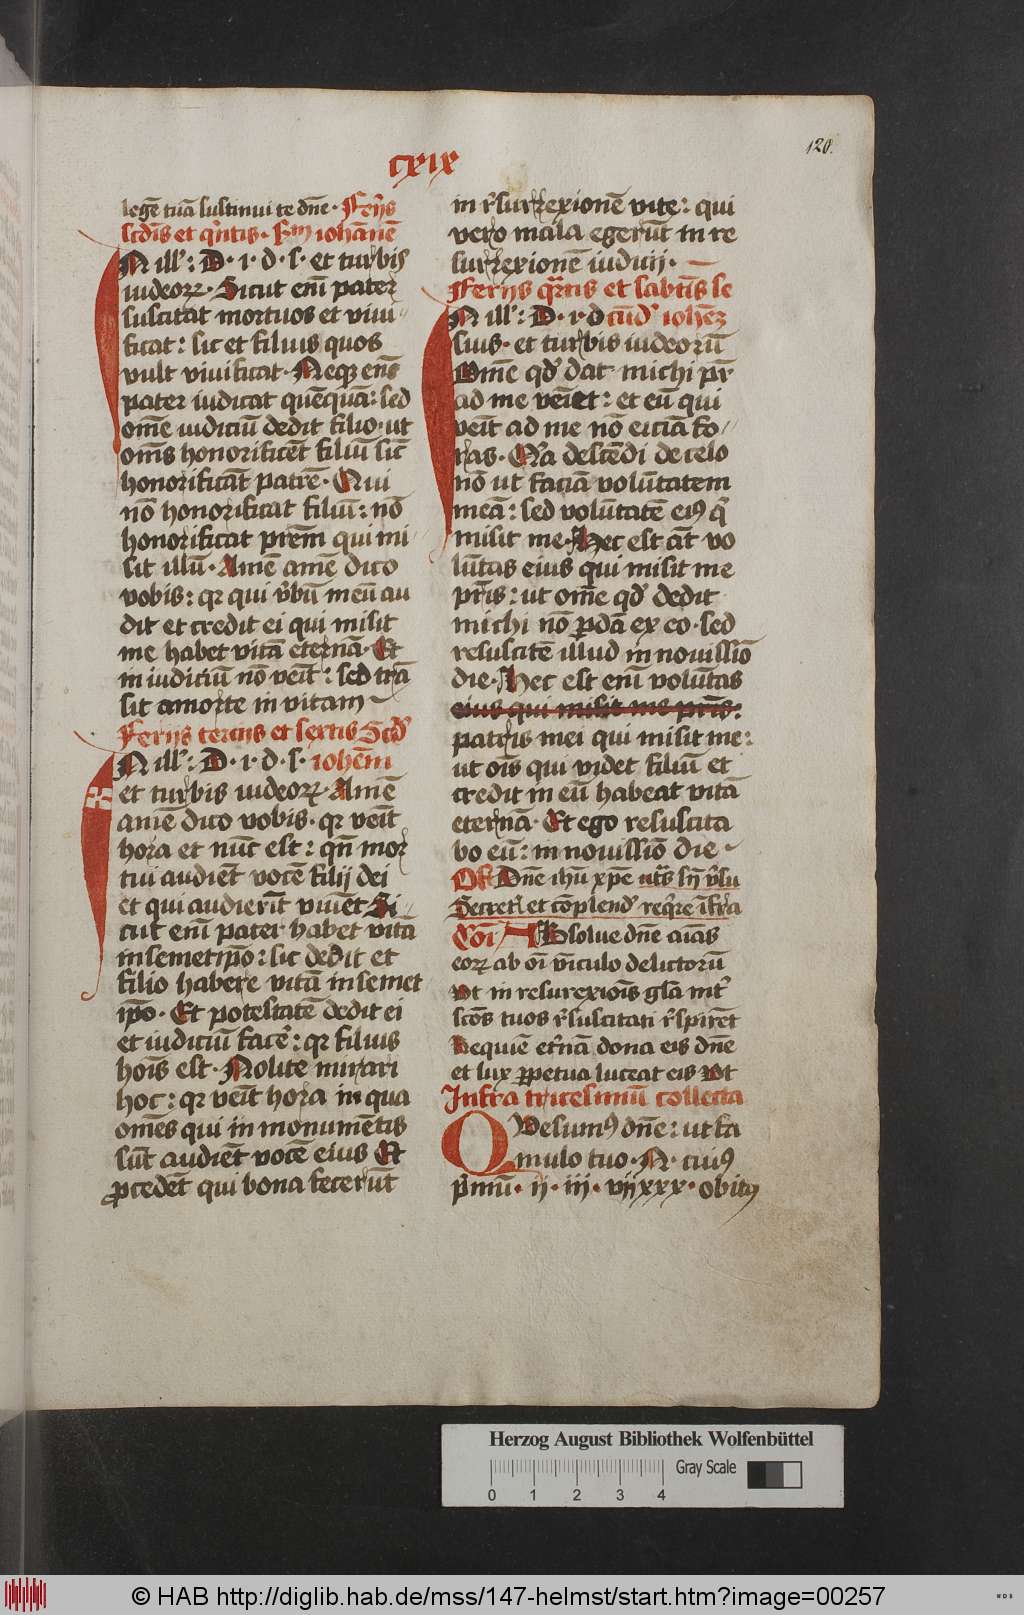 cxix
120.
legē tuā sustinui te dn̄e · Ferijs
scd̄is et qn̄tis · Sm̄ iohānē
IN ill': D · i · d · s · et turbis
iudeoꝝ · Sicut em̄ pater
suscitat mortuos et viui
ficat: sic et filius quos
vult viuificat · Neqꝫ em̄
pater iudicat quēquā: sed
om̄e iudiciū dedit filio · ut
om̄s honorificēt filiū sic̄
honorificāt patrē · Qui
nō honorificat filiū: nō
honorificat prēm qui mi
sit illū · Amē amē dico
vobis: qꝛ qui v̄bū meū au
dit et credit ei qui misit
me habet vitā eternā · Et
in iudiciū nō veīt: sed trā
sit amorte in vitam
Ferijs tercijs et sextis Scd'
IN ill': D · i · d · s · iohēm
et turbis iudeoꝝ · Amē
amē dico vobis · qꝛ veīt
hora et nūc est: qn̄ mor
tui audiēt vocē filij dei
et qui audierīt viuēt Si
cut em̄ pater habet vitā
in semetip̄o: sic dedit et
filio habere vitā in semet
ip̄o · Et potestatē dedit ei
et iudiciū face᷑: qꝛ filius
hoīs est · Nolite mirari
hoc: qꝛ veīt hora in qua
om̄es qui in monumētis
sūt audiēt vocē eius Et
ꝓcedēt qui bona fecerūt
in r̄surrexionē vite: qui
vero mala egerūt in re
surrexionē iudicij ·
Ferijs qr̄tis et sabtīs se
IN ill': D · i · d cūd' iohēꝫ
suis · et turbis iudeorū
Om̄e qd' dat michi pr̄
ad me veīet: et eū qui
veīt ad me nō eiciā fo
ras · Qr̄a descēdi de celo
nō ut faciā volūtatem
meā: sed volūtatē eiꝰ q̄
misit me · Hec est āt vo
lūtas eius qui misit me
pr̄is: ut om̄e qd' dedit
michi nō ꝑdā ex eo · sed
resuscitē illud in nouissīo
die · Hec est em̄ volūtas
eius qui misit me pr̄is:
patris mei qui misit me:
ut oīs qui videt filiū et
credit in eū habeat vitā
eternā · Et ego resuscita
bo eū: in nouissīo die
Off Dn̄e ihū xp̄e ut s̄ sn̄ v̄su
Secret et cōplend' reqr̄e īfra
Cōi ABsolue dn̄e aīas
eoꝝ ab oī vīculo delictorū
Vt in resurexiōis gl̄a int'
scōs tuos r̄suscitati r̄spirēt
Requiē et̄nā dona eis dn̄e
et lux ꝑpetua luceat eis Vt
Infra tricesimū collecta
QVesumꝰ dn̄e: ut fa
mulo tuo · N · cuiꝰ
p̄mū · ij · iij · vij xxx · obitꝰ
Herzog August Bibliothek Wolfenbüttel
Gray Scale
0 1 2 3 4
© HAB http://diglib.hab.de/mss/147-helmst/start.htm?image=00257